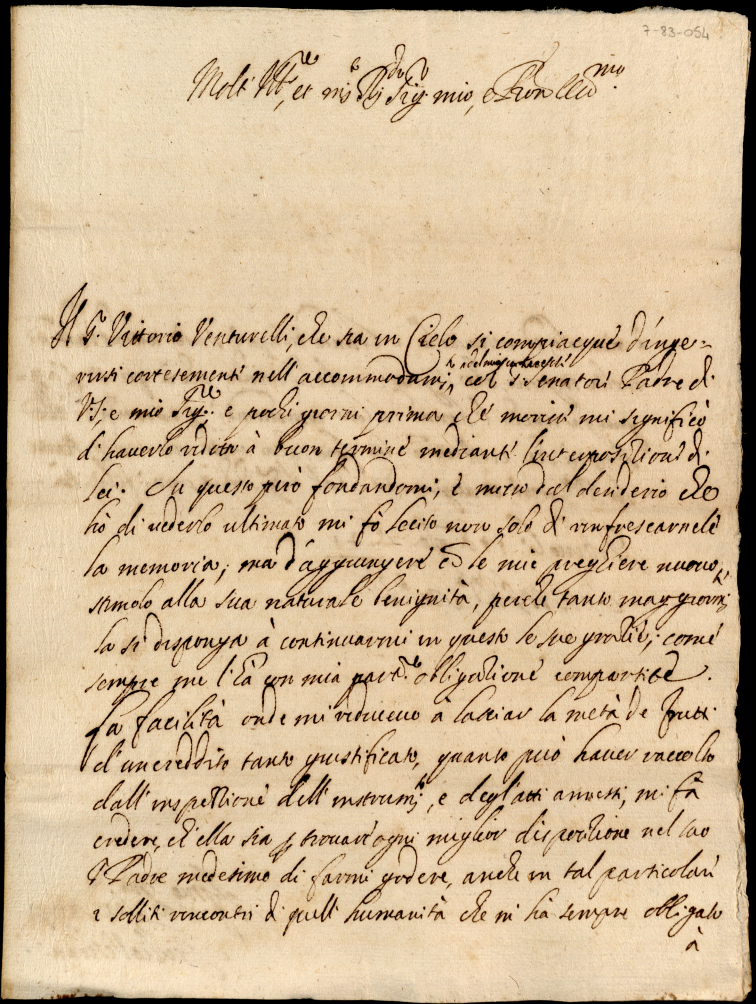 7-83-054
Molt' Ill.re et mio Sig.r mio, e P.ron
Il S.r Vittorio Venturelli, che sia in Cielo si compiacque d'inge=
rirsi cortesemente nell'accommodarmi, col S.r Senatore Padre di
V.S., e mio Sig.re e pochi giorni prima che morisse mi significò
d'haverlo ridotto à buon termine mediante l'interpositione di
Lei. Su questo però fondandomi, e mosso dal desiderio che
hò di vederlo ultimato mi fò lecito non solo di rinfrescarnele
la memoria, ma d'aggiungere cō le mie preghiere nuovo
stimolo alla sua naturale benignità, perche tanto maggiorm.te
la si disponga à continuarmi in questo le sue gratie, come
sempre me l'hà con mia part.re obligatione compartite.
La facilità onde mi riducevo à lasciar la metà de frutti
d'un creddito tanto giustificato, quanto può haver raccolto
dall'inspettione dell'instrum.to, e degl'atti annessi, mi fà
credere, ch'ella sia p trovare ogni miglior dispositione nel suo
S.r Padre medesimo di farmi godere, anche in tal particolare
i soliti rincontri di quell'humanità che mi hà sempre obligato
à